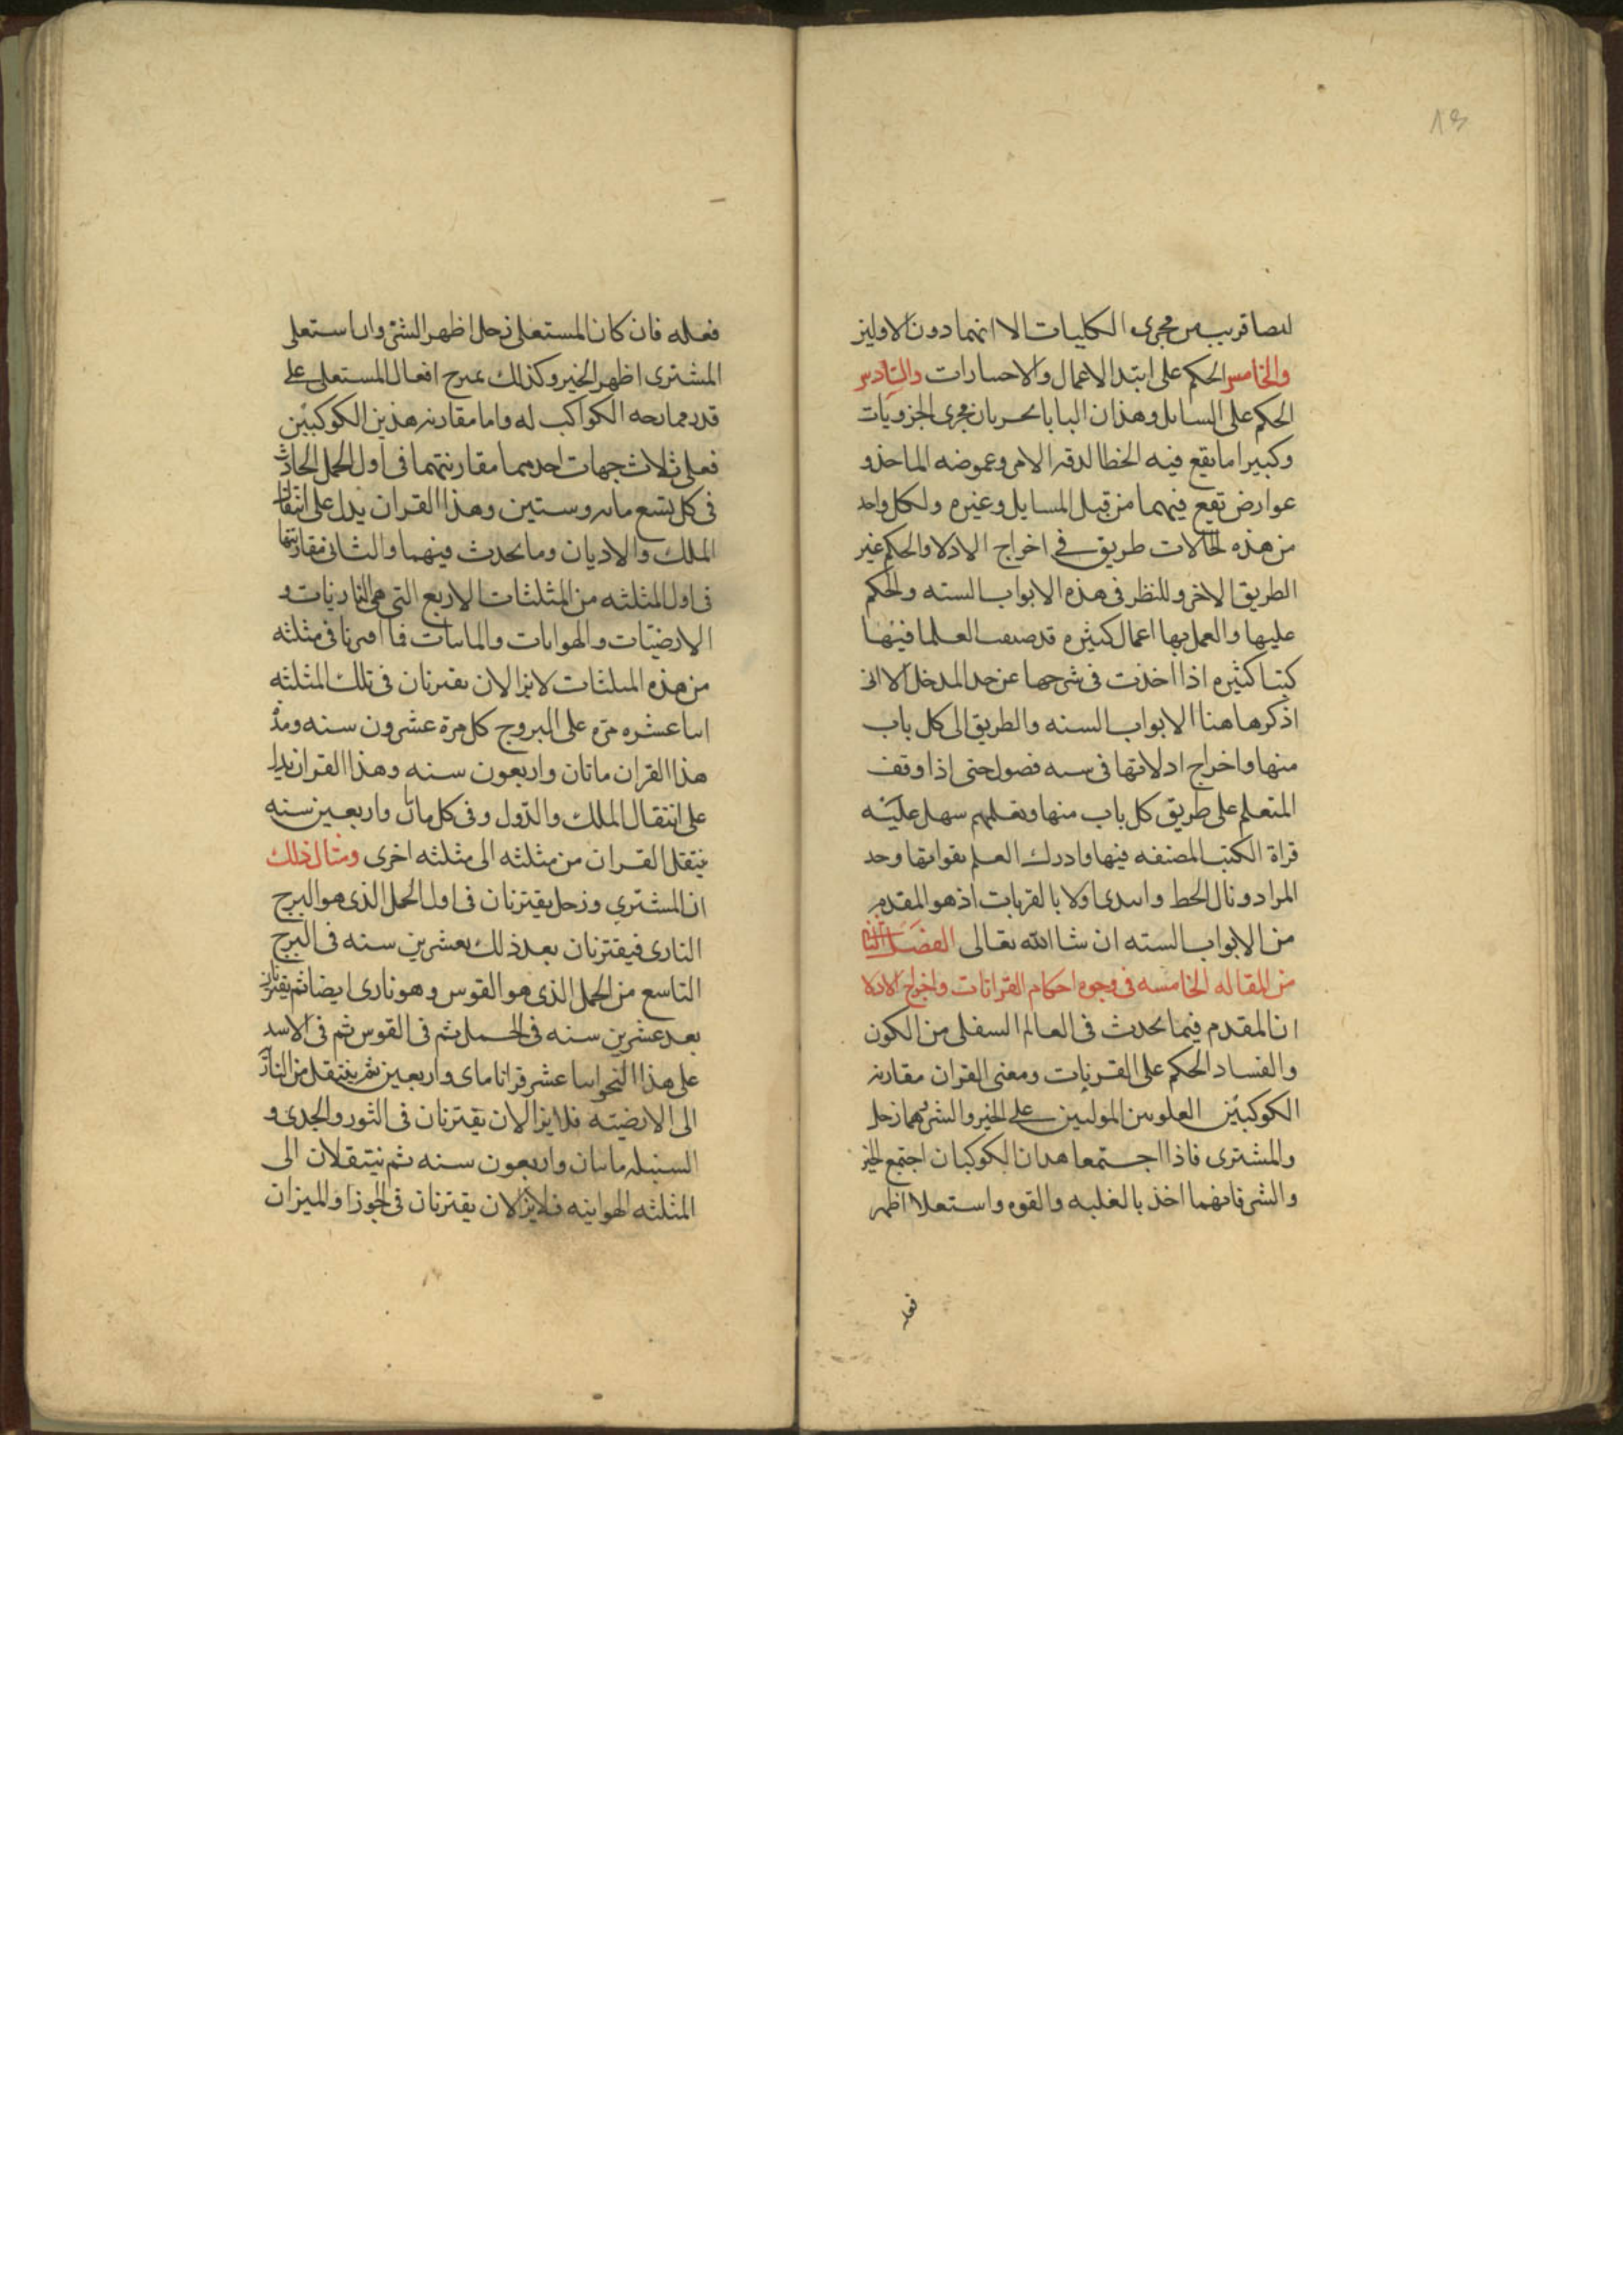 ايضا قريب من مجرى الكليات الا انهما دون الاولين
والخامس الحكم على ابتدا الاعمال والاختيارات والسادس
الحكم على المسايل وهذان البابا يجريان مجرى الجزويات
وكثيرا ما يقع فيه الخطا لدقة الامر وغموضه الماخذ و
عوارض تقع فيهما من قبل المسايل وغيره ولكل واحد
من هذه الحالات طريق في اخراج الادلا والحكم غير
الطريق الاخر وللنظر في هذه الابواب السته والحكم
عليها والعمل بها اعمال كثيره قد صنفت العلما فيها
كتبا كثيره اذا اخذت في شرحها عن حد المدخل الا انى
اذكر هاهنا الابواب السته والطريق الى كل باب
منها واخراج ادلاتها في سته فصول حتى اذا وقف
المتعلم على طريق كل باب منها وتعلمهم سهل عليه
قراة الكتب المصنفه فيها وادرك العلم بقوامها وحد
المراد ونال الحظ وابتدى اولا بالقرانات اذ هو المقدم
من الابواب السته ان شا الله تعالى الفصل الثانى
من المقاله الخامسه في وجوه احكام القرانات واخراج الادلا
ان المقدم فيما يحدث في العالم السفلى من الكون
والفساد الحكم على القرنات ومعنى القران مقارنه
الكوكبين العلويين الموليين على الخير والشر وهما زحل
والمشترى فاذا اجتمعا هذان الكوكبان اجتمع الخير
والشر فانهما اخذ بالغلبه والقوه واستعلا اظهر
فعله
فعله فان كان المستعلى زحل اظهر الشر وان استعلى
المشترى اظهر الخير وكذلك يمزج افعال المستعلى على
قدر ممازجه الكواكب له واما مقارنه هذين الكوكبين
فعلى ثلاث جهات احدهما مقارنتهما في اول الحمل الحادث
في كل تسع مايه وستين وهذا القران يدل على انتقال
الملك والاديان وما يحدث فيهما والثانى مقارنتهما
في اول المثلثه من المثلثات الاربع التى هى الناريات و
الارضيات والهوايات والمايات فما اقترنا في مثلثه
من هذه المثلثات لايزالان يقترنان في تلك المثلثه
اثنا عشره مره على البروج كل مرة عشرون سنه ومدة
هذا القران ماتان واربعون سنه وهذا القران يدل
على انتقال الملك والدول وفي كل مايتان واربعين سنه
ينتقل القران من مثلثه الى مثلثه اخرى ومثال ذلك
ان المشتري وزحل يقترنان في اول الحمل الذى هو البرج
النارى فيقترنان بعد ذلك بعشرين سنه في البرج
التاسع من الحمل الذى هو القوس وهو نارى ايضا ثم يقترنان
بعد عشرين سنه في الحمل ثم في القوس ثم في الاسد
على هذا النحو اثنا عشر قرانا ماى واربعين ثم ينتقل من النار
الى الارضيته فلا يزالان يقترنان في الثور والجدى و
السنبله ماتان واربعون سنه ثم ينتقلان الى
المثلثه الهوايئه فلايزالان يقترنان في الجوزا والميزان